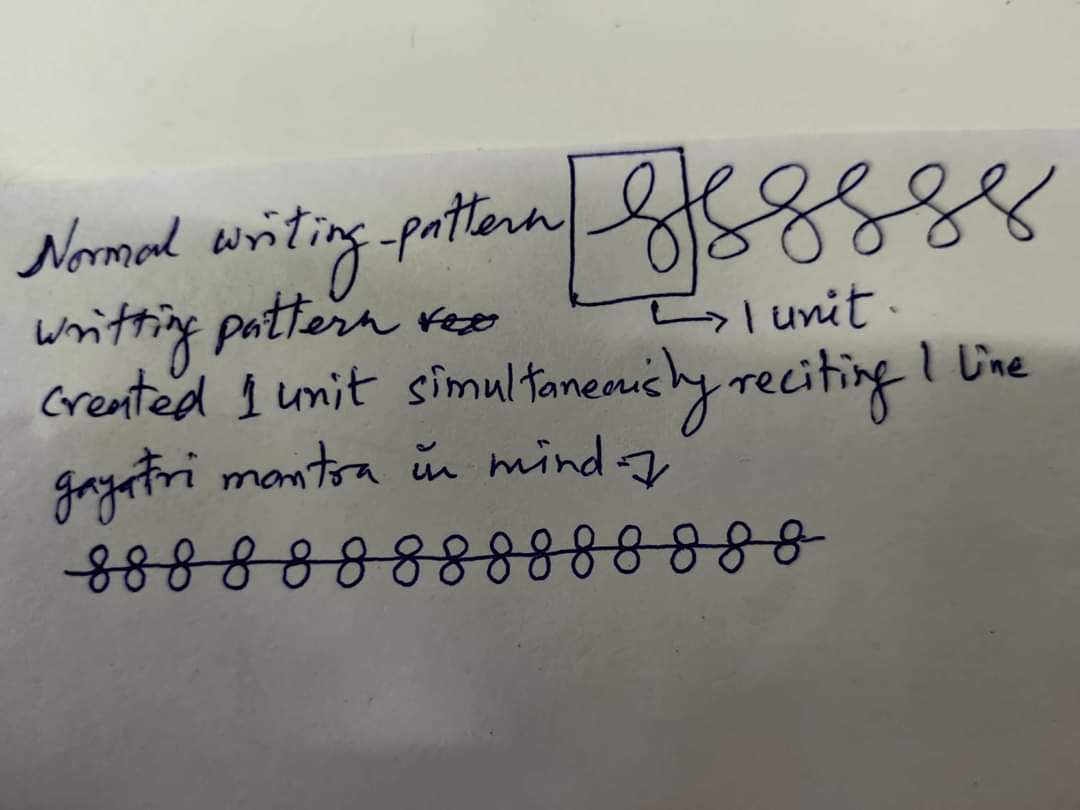 Normal writing-pattern
→ 1 unit.
writting pattern
created 1 unit simultaneously reciting 1 line
gayatri mantra in mind